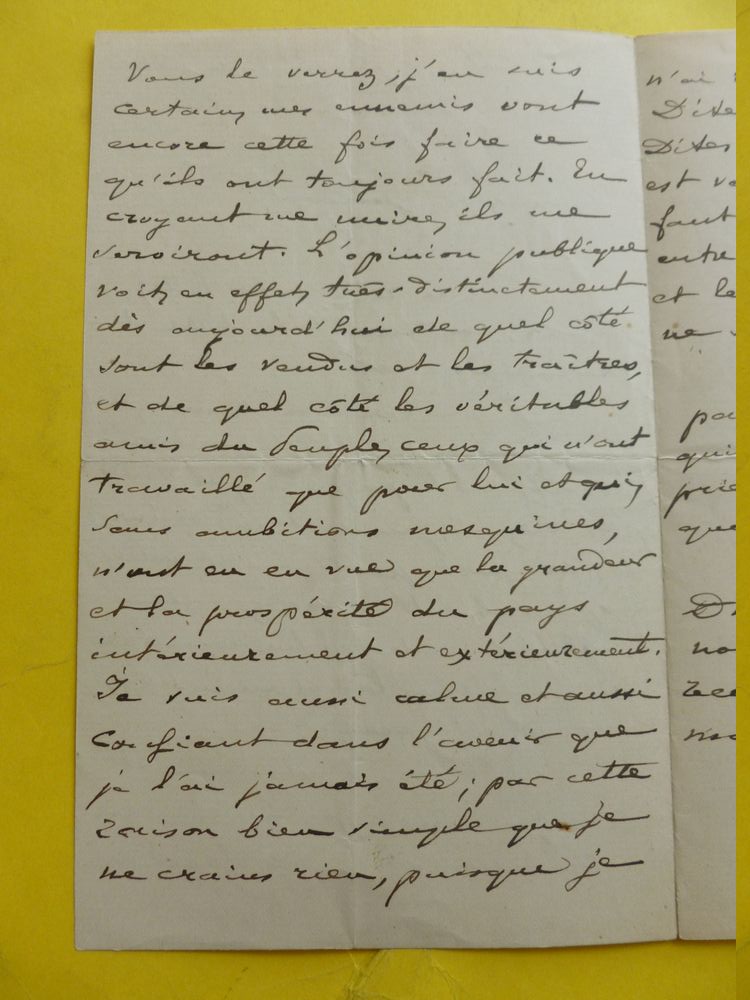 Vous le verrez, j'en suis
certain, mes ennemis vont
encore cette fois faire ce
qu'ils ont toujours fait. En
croyant me nuire, ils me
serviront. L'opinion publique
voit, en effet, très distinctement
dès aujourd'hui de quel côté
sont les vendus et les traîtres,
et de quel côté les véritables
amis du Peuple, ceux qui n'ont
travaillé que pour lui et qui,
sans ambitions mesquines,
n'ont eu en vue que la grandeur
et la prospérité du pays
intérieurement et extérieurement.
Je suis aussi calme et aussi
confiant dans l'avenir que
je l'ai jamais été ; par cette
raison bien simple que je
ne crains rien, puisque je
n'ai
Dites
est
faut
entre
et le
ne